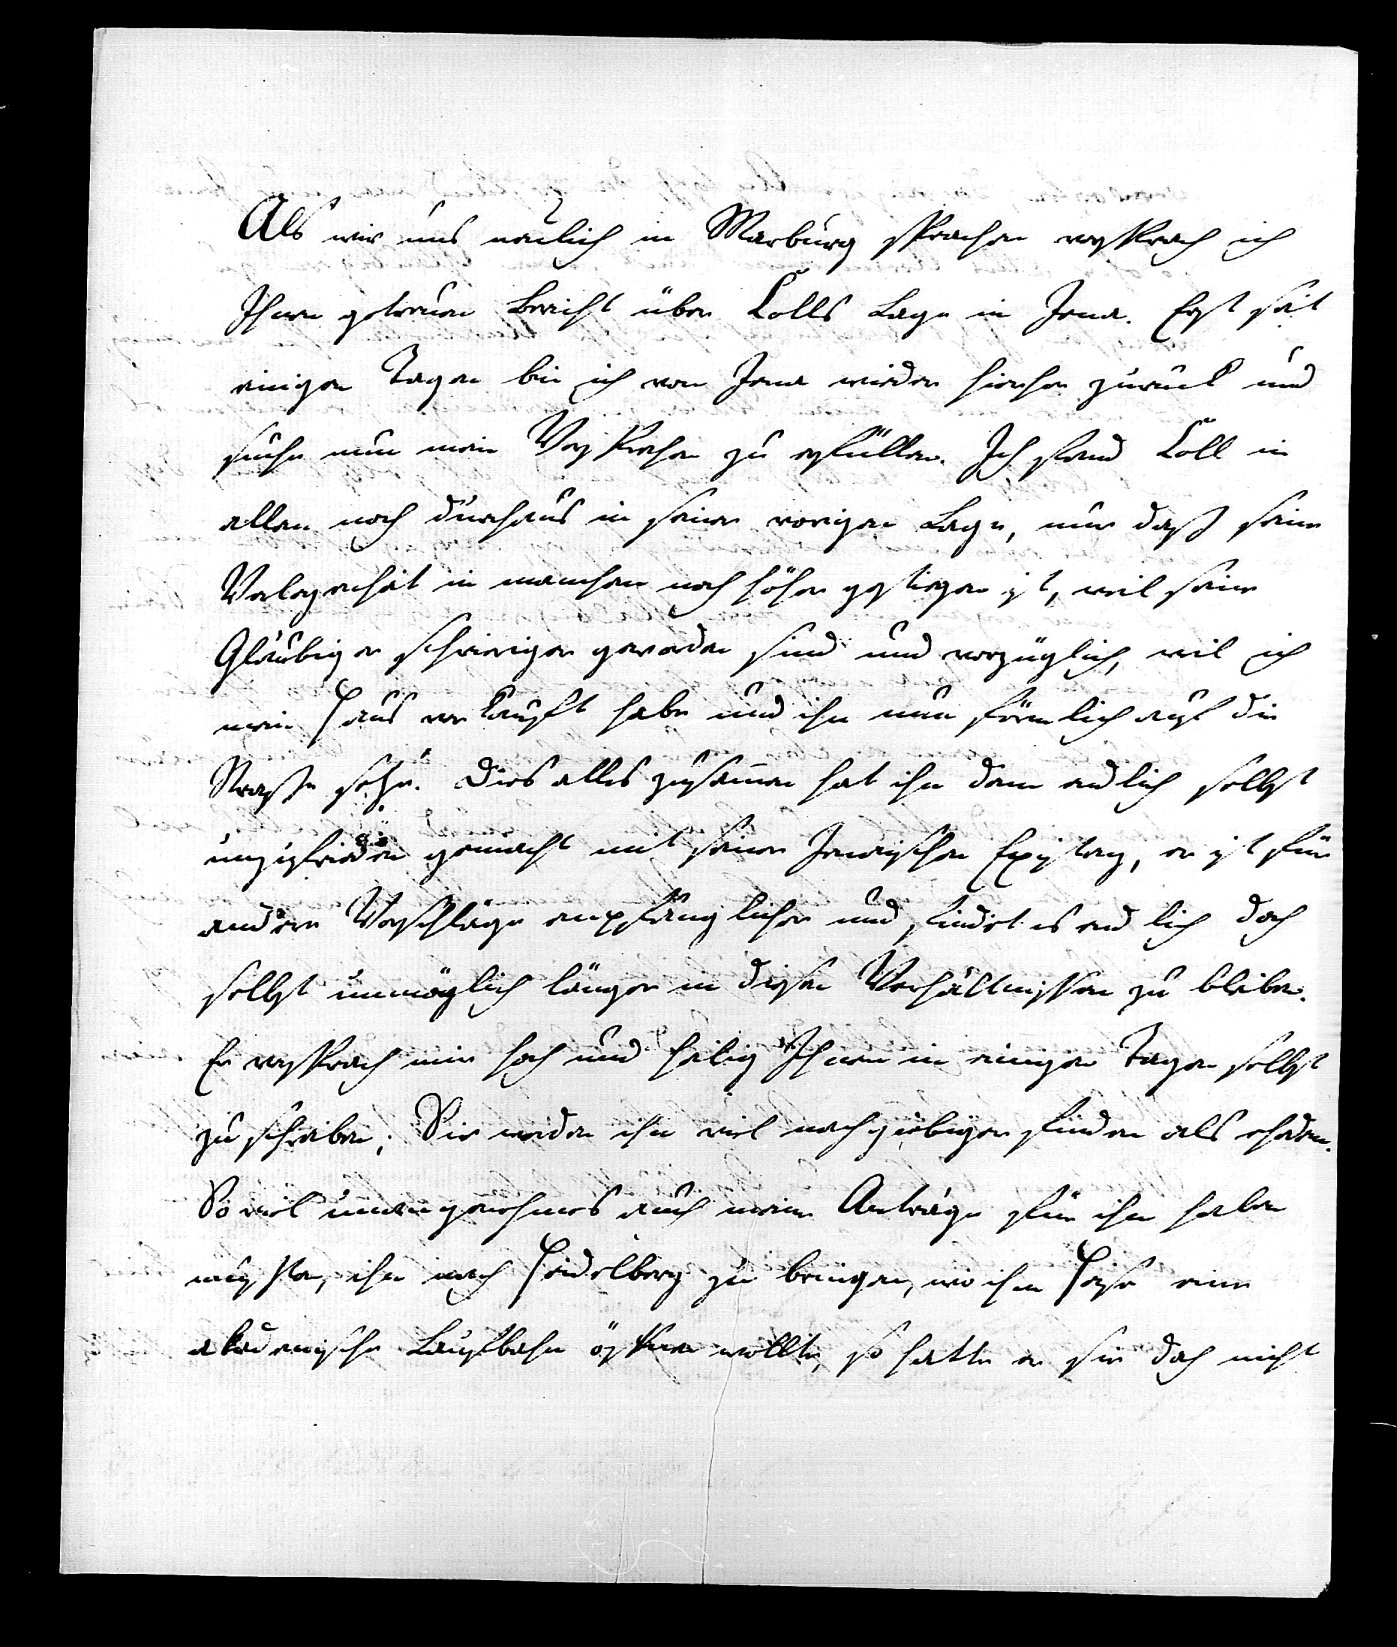 Als wir uns neulich in Marburg sprachen versprach ich
Ihnen getreuen Bericht über Kolls Lage in Jena. Erst seit
einigen Tagen bin ich von Jena wieder hierher zurück und
suche nun mein Versprechen zu erfüllen. Ich fand Koll in
allem noch durchaus in seiner vorigen Lage, nur daß seine
Verlegenheit in manchem noch höher gestiegen ist, weil seine
Gläubiger schwieriger geworden sind und vorzüglich, weil ich
mein Haus verkauft habe und ihn nun förmlich auf die
Straße setze. Dies alles zusammen hat ihn denn endlich selbst
unzufrieden gemacht mit seiner Jenaischen Existenz, er ist für
andere Vorschläge empfänglicher und findet es endlich doch
selbst unmöglich länger in diesen Verhältnissen zu bleiben.
Er versprach mir hoch und heilig Ihnen in einigen Tagen selbst
zu schreiben; Sie werden ihn viel nachgiebiger finden als ehedem.
So viel unangenehmes auch meine Anträge für ihn haben
mußten, ihn nach Heidelberg zu bringen, wo ihm Heise eine
akademische Laufbahn öffnen wollte, so hatte er sie doch nicht